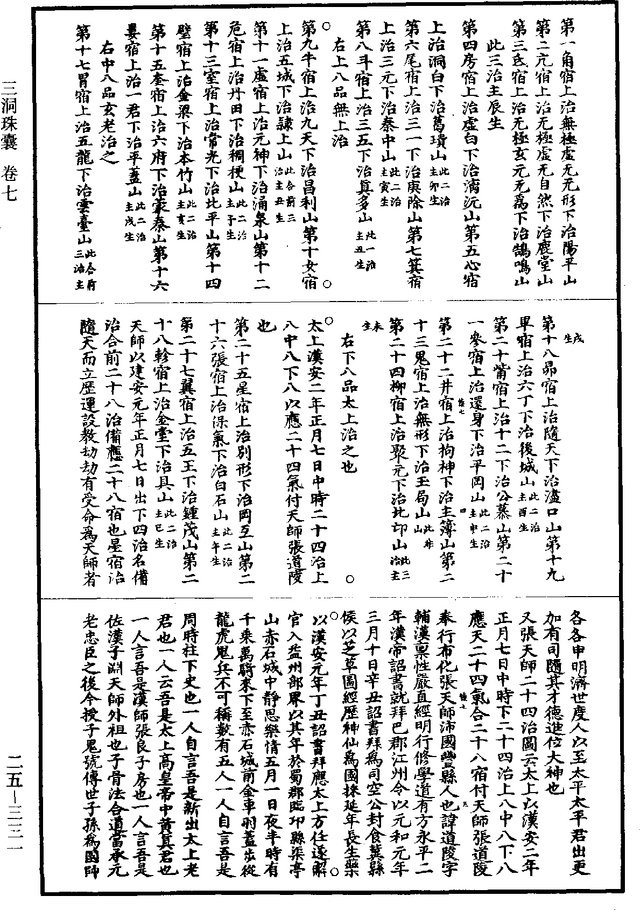 第一角宿上治無極虛无无形下治陽平山
第二亢宿上治无極虛无自然下治鹿堂山
第三氐宿上治无極玄元无為下治鶴鳴山
此三治主辰生
第四房宿上治虛白下治漓沅山第五心宿
上治洞白下治葛璝山此二治主卯生
第六尾宿上治三一下治庚除山第七箕宿
上治三元下治秦中山此二治主寅生
第八斗宿上治三五下治真多山此一治主丑生
右上八品無上治
第九牛宿上治九天下治昌利山第十女宿
上治五城下治隸上山此合前三治主丑生
第十一虛宿上治元神下治涌泉山第十二
危宿上治丹田下治稠梗山此二治主子生
第十三室宿上治常光下治北平山第十四
壁宿上治金梁下治本竹山此二治主亥生
第十五奎宿上治六府下治蒙秦山第十六
婁宿上治一君下治平蓋山此二治主戌生
右中八品玄老治之
第十七胃宿上治五龍下治雲臺山此合前三治主
戌生
第十八昴宿上治隨天下治濜口山第十九
畢宿上治六丁下治後城山此二治主酉生
第二十觜宿上治十二下治公慕山第二十
一參宿上治還身下治平岡山此二治主申生
第二十二井宿上治拘神下治主簿山第二
十三鬼宿上治無形下治玉局山
第二十四柳宿上治聚元下治北邙山此三治主
未生
右下八品太上治之也
太上漢安二年正月七日中時二十四治上
八中八下八以應二十四氣付天師張道陵
也
第二十五星宿上治別形下治岡互山第二
十六張宿上治保氣下治白石山此二治主午生
第二十七翼宿上治五王下治鍾茂山第二
十八軫宿上治金堂下治具山此二治主巳生
天師以建安元年正月七日出下四治名備
治合前二十八治備應二十八宿也星宿治
隨天而立歷運設教劫劫有受命為天師者
各各申明濟世度人以至太平太平君出更
加有司隨其才德進位大神也
又張天師二十四治圖云太上以漢安二年
正月七日中時下二十四治上八中八下八
應天二十四氣合二十八宿付天師張道陵
奉行布化張天師沛國豐縣人也諱道陵字
輔漢稟性嚴直經明行修學道有方永平二
年漢帝詔書就拜巴郡江州令以元和元年
三月十日辛丑詔書拜為司空公封食冀縣
侯以芝草圖經歷神仙為國採延年長生藥
以漢安元年丁丑詔書拜應太上方任遂解
官入益州部界以其年於蜀郡臨邛縣渠亭
山赤石城中靜思樂情五月一日夜半時有
千乘萬騎來下至赤石城前金車羽蓋步從
龍虎鬼兵不可稱數有五人一人自言吾是
周時柱下史也一人自言吾是新出太上老
君也一人云吾是太上高皇帝中黃真君也
一人言吾是漢師張良子房也一人言吾是
佐漢子淵天師外祖也子骨法合道當承元
老忠臣之後今授子鬼號傳世子孫為國師
三洞珠囊 卷七
二五—三三一